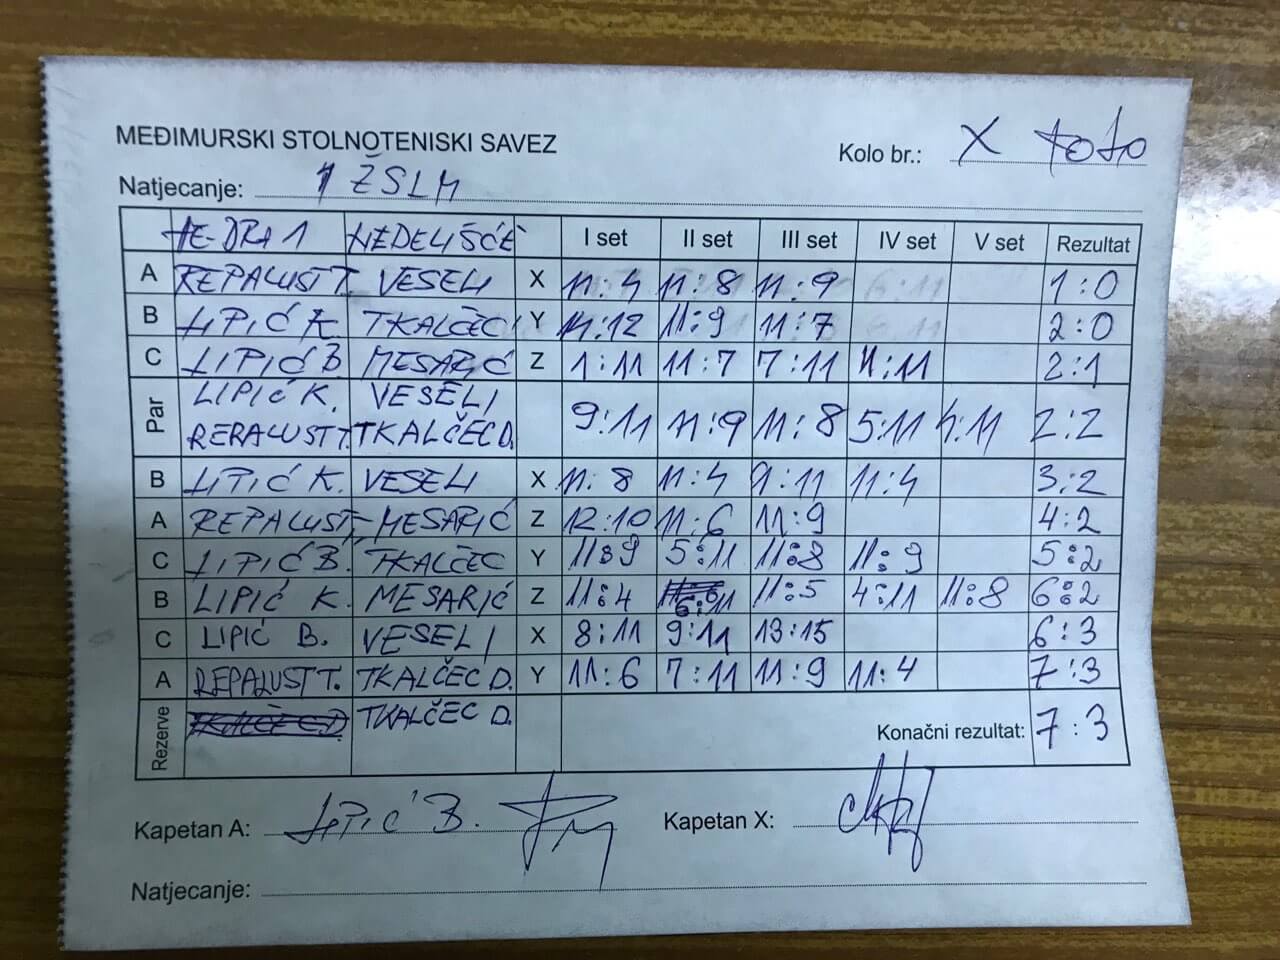 MEĐIMURSKI STOLNOTENISKI SAVEZ
Kolo br.: X
Natjecanje: 1 ŽSLM
NEDELIŠĆE I set II set III set IV set V set Rezultat
A REPALUST T. VESELI X 11:4 11:8 11:9 1:0
B LIPIĆ K TKALČEC Y 14:12 11:9 11:7 2:0
C LIPIĆ B. MESARIĆ Z 1:11 11:7 7:11 4:11 2:1
Par LIPIĆ K. VESELI 9:11 11:9 11:8 5:11 4:11 2:2
REPALUST T. TKALČEC D.
B LIPIĆ K. VESELI X 11:8 11:4 9:11 11:4 3:2
A REPALUST MESARIĆ Z 12:10 11:6 11:9 4:2
C LIPIĆ B. TKALČEC Y 11:9 5:11 11:8 11:9 5:2
B LIPIĆ K. MESARIĆ Z 11:4 6:11 11:5 4:11 11:8 6:2
C LIPIĆ B. VESELI X 8:11 9:11 13:15 6:3
A REPALUST T. TKALČEC D. Y 11:6 7:11 11:9 11:4 7:3
Rezerve TKALČEC D. Konačni rezultat: 7:3
Kapetan A: LIPIĆ B. Kapetan X:
Natjecanje: